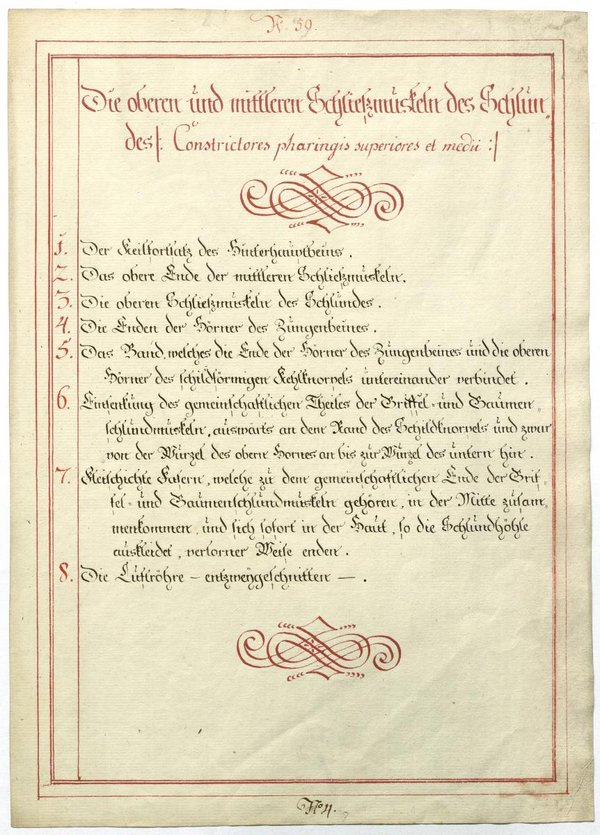 N. 59.
Die oberen und mittleren Schließmuskeln des Schlun„
des /: Constrictores pharingis superiores et medii :/
1. Der Keilfortsatz des Hinterhauptbeins.
2. Das obere Ende der mittleren Schließmuskeln.
3. Die oberen Schließmuskeln des Schlundes.
4. Die Enden der Hörner des Zungenbeines.
5. Das Band, welches die Ende der Hörner des Zungenbeines und die oberen
Hörner des schildförmigen Kehlknorpels untereinander verbindet.
6. Einsenkung des gemeinschaftlichen Theiles der Griffel- und Gaumen„
schlundmuskeln, auswärts an dem Rand des Schildknorpels und zwar
von der Wurzel des obern Hornes an bis zur Wurzel des untern hin.
7. Fleischichte Fasern, welche zu dem gemeinschaftlichen Ende der Grif„
fel- und Gaumenschlundmuskeln gehören, in der Mitte zusam„
menkommen, und sich sofort in der Haut, so die Schlundhöhle
auskleidet, verlorner Weise enden.
8. Die Luftröhre – entzweygeschnitten –.
No 4.